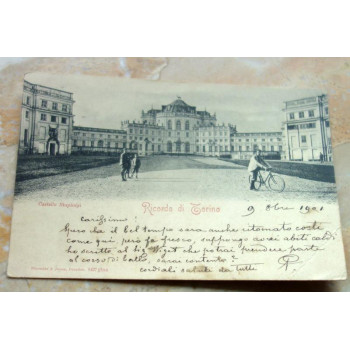 Castello Stupinigi
Ricordo di Torino
9 8bre 1901
Carissimo!
Spero che il bel tempo sarà anche ritornato costì
come qui, però fa fresco, suppongo avrai abiti caldi
ho scritto al che potrai prendere parte
al corso di ballo, sarai contento?
cordiali saluti da tutti